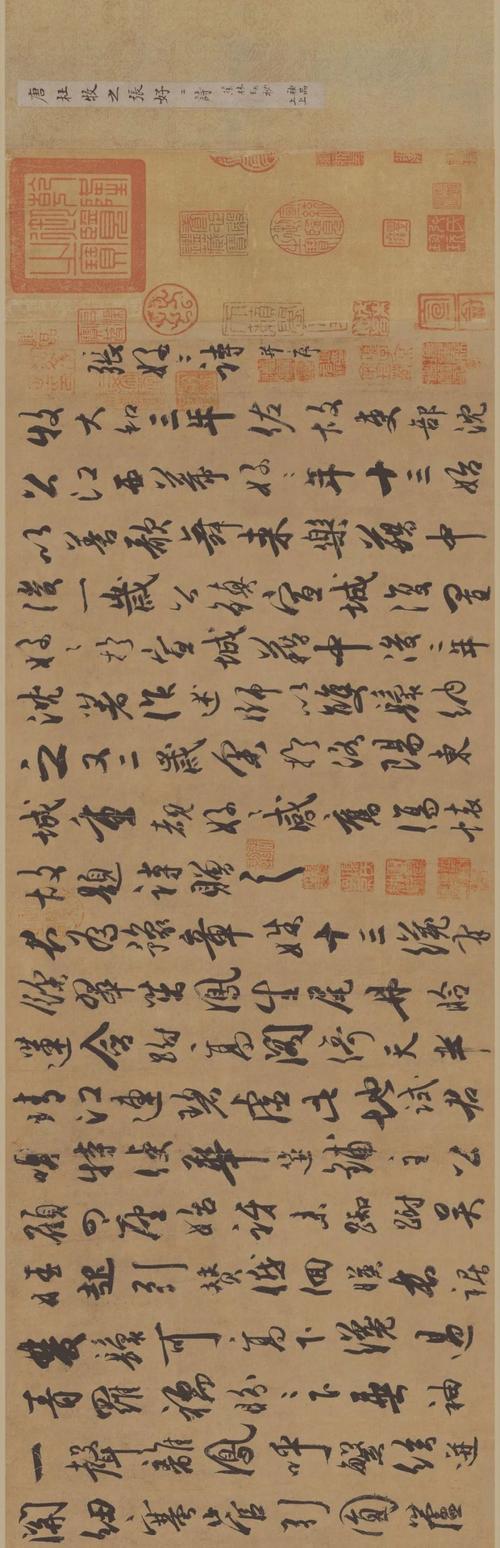 唐杜牧之張好好詩
張好好詩并序
牧大和三年佐故吏部沈
公江西幕好好年十三始
以善歌舞來樂籍中
後一歲公鎮宣城復置
好好於宣城籍中後二年
沈著作述師以雙鬟納
之又二歲余於洛陽東
城重覩好好感舊傷懷
故題詩贈之
君為豫章姝十三纔有
餘翠茁鳳生尾丹臉
蓮含跗高閣倚天半
晴江連碧虛此地試君
唱特使華筵鋪主公
顧四座始訝來踟躕吳
娃起引贊低佪暎長裾
雙鬟可高下纔過
青羅襦盼盼下垂袖
一聲離鳳呼繁絃迸
關紐塞管引圓蘆